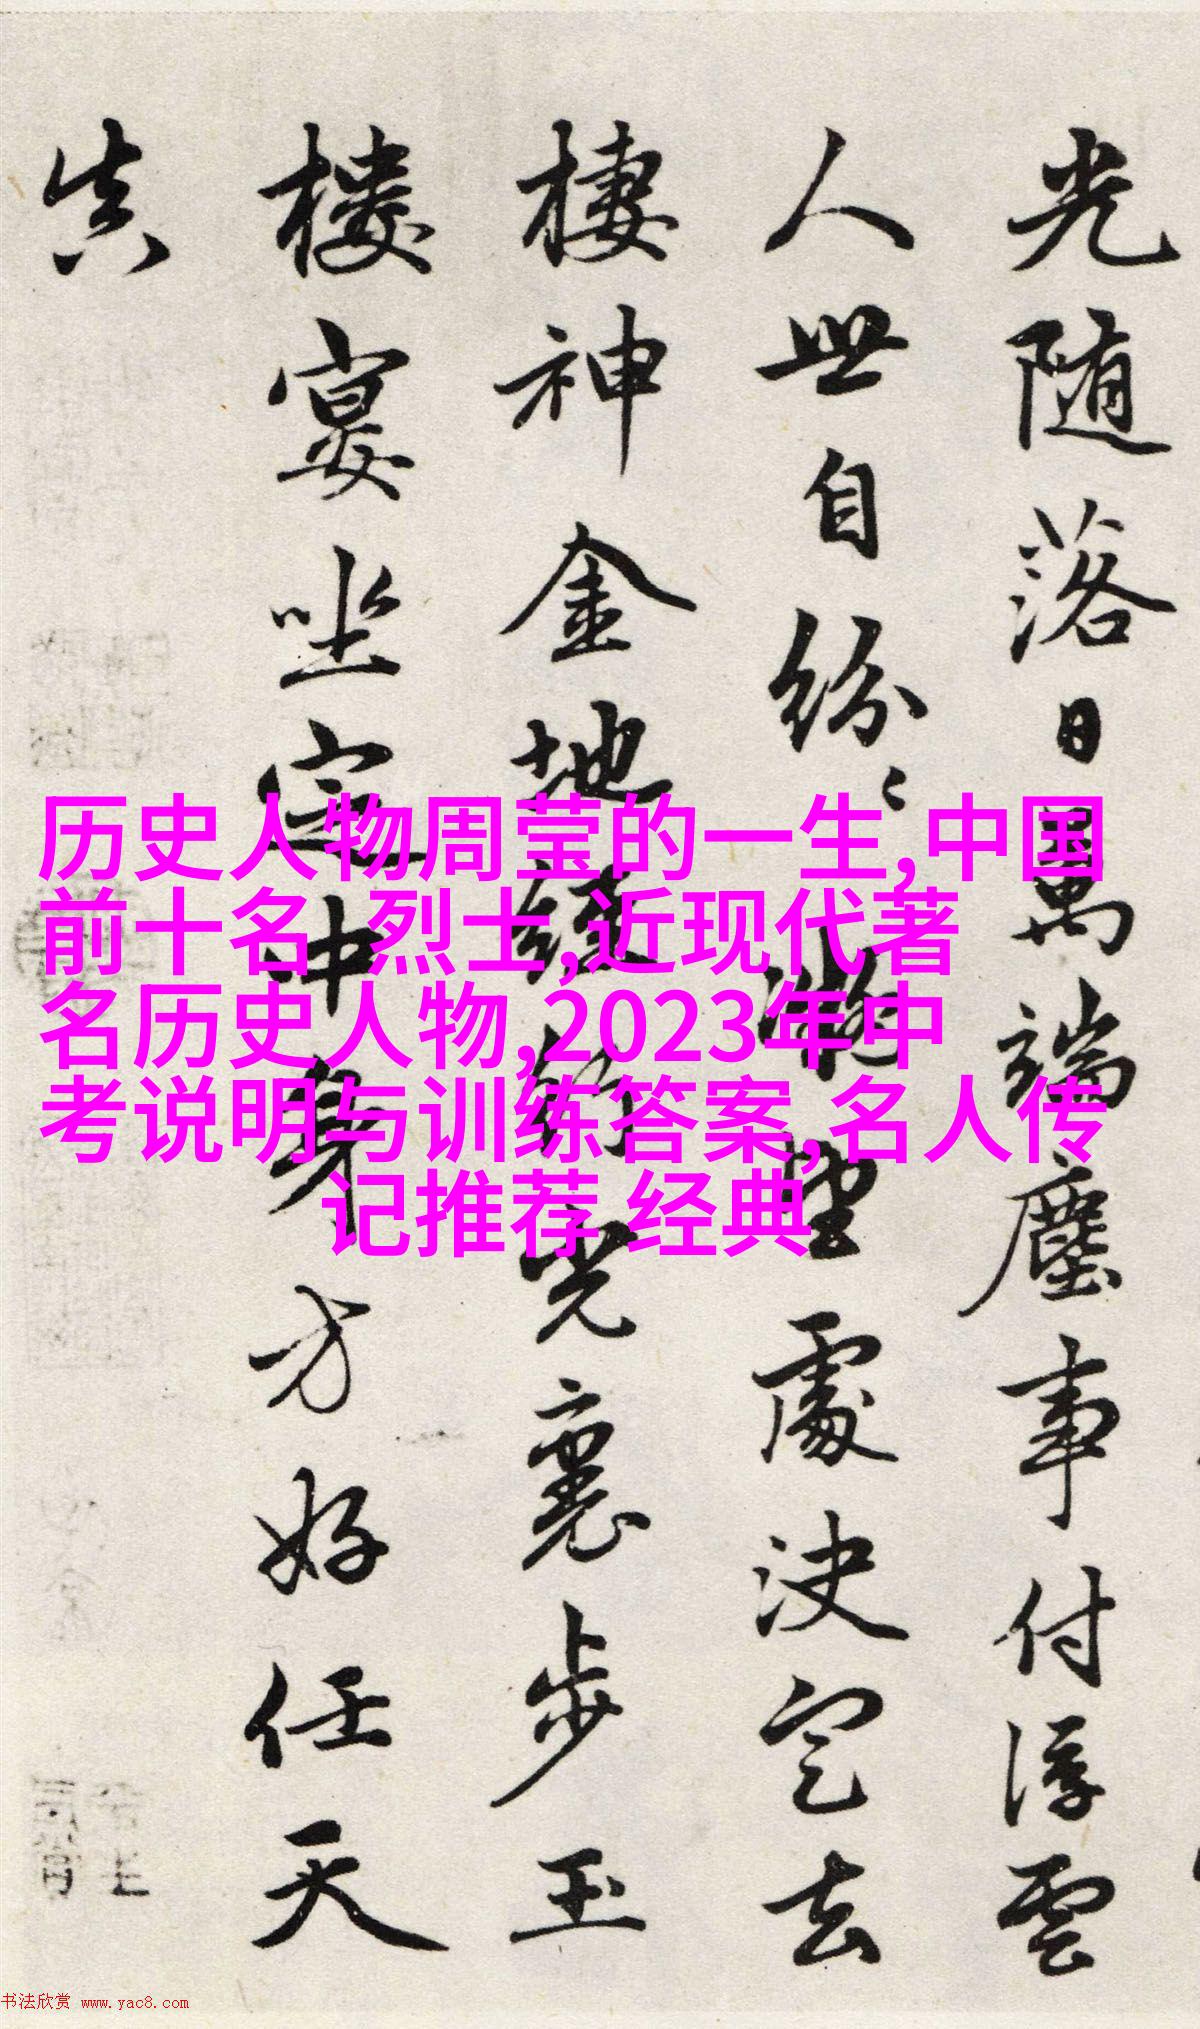 光随落日萬端塵事付浮雲
人世自紛〻望處決定去
棲神金地經行光裏步玉
樓宴坐定中身方好任天
真
历史人物周莹的一生,中国
前十名 烈士,近现代著
名历史人物,2023年中
考说明与训练答案,名人传
记推荐 经典
书法欣赏 www.yac8.com